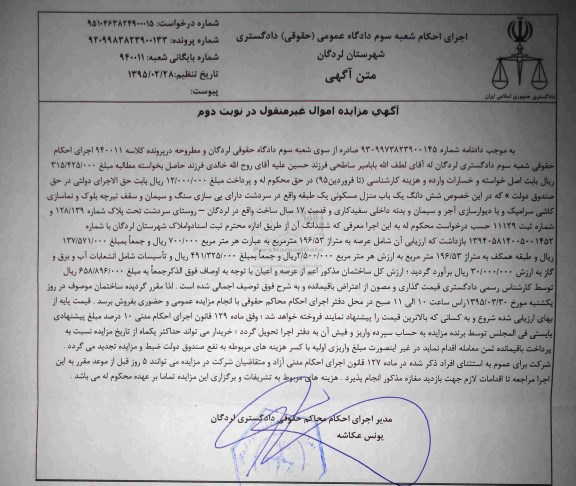 شماره درخواست: ۹۵۱۰۴۶۳۸۲۴۹۰۰۰۱۵
شماره پرونده: ۹۳۰۹۹۸۳۸۲۳۹۰۰۱۳۳
شماره بایگانی شعبه: ۹۴۰۰۱۱
تاریخ تنظیم: ۱۳۹۵/۰۲/۲۸
پیوست:
اجرای احکام شعبه سوم دادگاه عمومی (حقوقی) دادگستری
شهرستان لردگان
متن آگهی
دادگستری جمهوری اسلامی ایران
آگهي مزایده اموال غیرمنقول در نوبت دوم
به موجب دادنامه شماره ۹۳۰۹۹۷۳۸۲۳۹۰۰۱۴۵ صادره از سوی شعبه سوم دادگاه حقوقی لردگان و مطروحه درپرونده کلاسه ۹۴۰۰۱۱ اجرای احکام
حقوقی شعبه سوم دادگستری لردگان له آقای لطف الله بابامیر ساطحی فرزند حسین علیه آقای روح الله خالدی فرزند حاصل بخواسته مطالبه مبلغ ۳۱۵/۴۲۵/۰۰۰
ریال بابت اصل خواسته و خسارات وارده و هزینه کارشناسی (تا فروردین۹۵) در حق محکوم له و پرداخت مبلغ ۱۲/۰۰۰/۰۰۰ ریال بابت حق الاجرای دولتی در حق
صندوق دولت » که در این خصوص شش دانگ یک باب منزل مسکونی یک طبقه واقع در سردشت دارای پی سازی سنگ و سیمان و سقف تیرچه بلوک و نماسازی
کاشی سرامیک و یا دیوارسازی آجر و سیمان و بدنه داخلی سفیدکاری و قدمت ۱۷ سال ساخت واقع در لردگان – روستای سردشت تحت پلاک شماره ۱۲۸/۱۳۹ و
شماره ثبت ۱۱۱۲۹ حسب درخواست محکوم له به این اجرا معرفی که ششدانگ آن از طریق اداره محترم ثبت اسنادواملاک شهرستان لردگان با شماره
۱۳۹۴۰۵۸۱۴۰۰۵۰۰۱۴۵۲ بازداشت که ارزیابی آن شامل عرصه به متراژ ۱۹۶/۵۳ مترمربع به عبارت هر متر مربع ۷۰۰/۰۰۰ ریال و جمعاً بمبلغ ۱۳۷/۵۷۱/۰۰۰
ریال و طبقه همکف به متراژ ۱۹۶/۵۳ متر مربع به ارزش هر متر مربع ۲/۵۰۰/۰۰۰ریال و جمعاً بمبلغ ۴۹۱/۳۲۵/۰۰۰ ریال و تأسیسات شامل انشعابات آب و برق و
گاز به ارزش ۳۰/۰۰۰/۰۰۰ ریال برآورد گردید ؛ ارزش کل ساختمان مذکور اعم از عرصه و اعیان با توجه به اوصاف فوق الذکرجمعاً به مبلغ ۶۵۸/۸۹۶/۰۰۰ ریال
توسط کارشناس رسمی دادگستری قیمت گذاری و مصون از اعتراض باقیمانده و به شرح فوق توصیف اجمالی شده است . لذا مقرر گردیده ساختمان موصوف در روز
یکشنبه مورخ ۱۳۹۵/۰۳/۳۰راس ساعت ۱۰ الی ۱۱ صبح در محل دفتر اجرای احکام محاکم حقوقی با انجام مزایده عمومی و حضوری بفروش برسد . قیمت پایه از
بهای ارزیابی شده شروع و به کسانی که بالاترین قیمت را پیشنهاد نمایند فروخته خواهد شد ؛ وفق ماده ۱۲۹ قانون اجرای احکام مدنی ۱۰ درصد مبلغ پیشنهادی
بایستی فی المجلس توسط برنده مزایده به حساب سپرده واریز و فیش آن به دفتر اجرا تحویل گردد ؛ خریدار می تواند حداکثر یکماه از تاریخ مزایده نسبت به
پرداخت باقیمانده ثمن معامله اقدام نماید در غیر اینصورت مبلغ واریزی اولیه با کسر هزینه های مربوطه به نفع صندوق دولت ضبط و مزایده تجدید می گردد .
شرکت برای عموم به استثنای افراد ذکر شده در ماده ۱۲۷ قانون اجرای احکام مدنی آزاد و متقاضیان شرکت در مزایده می توانند ۵ روز قبل از موعد مقرر به این
اجرا مراجعه تا اقدامات لازم جهت بازدید مغازه مذکور انجام پذیرد . هزینه های مربوط به تشریفات و برگزاری این مزایده تماما بر عهده محکوم له می باشد .
مدیر اجرای احکام محاکم حقوقی دادگستری لردگان
یونس عکاشه